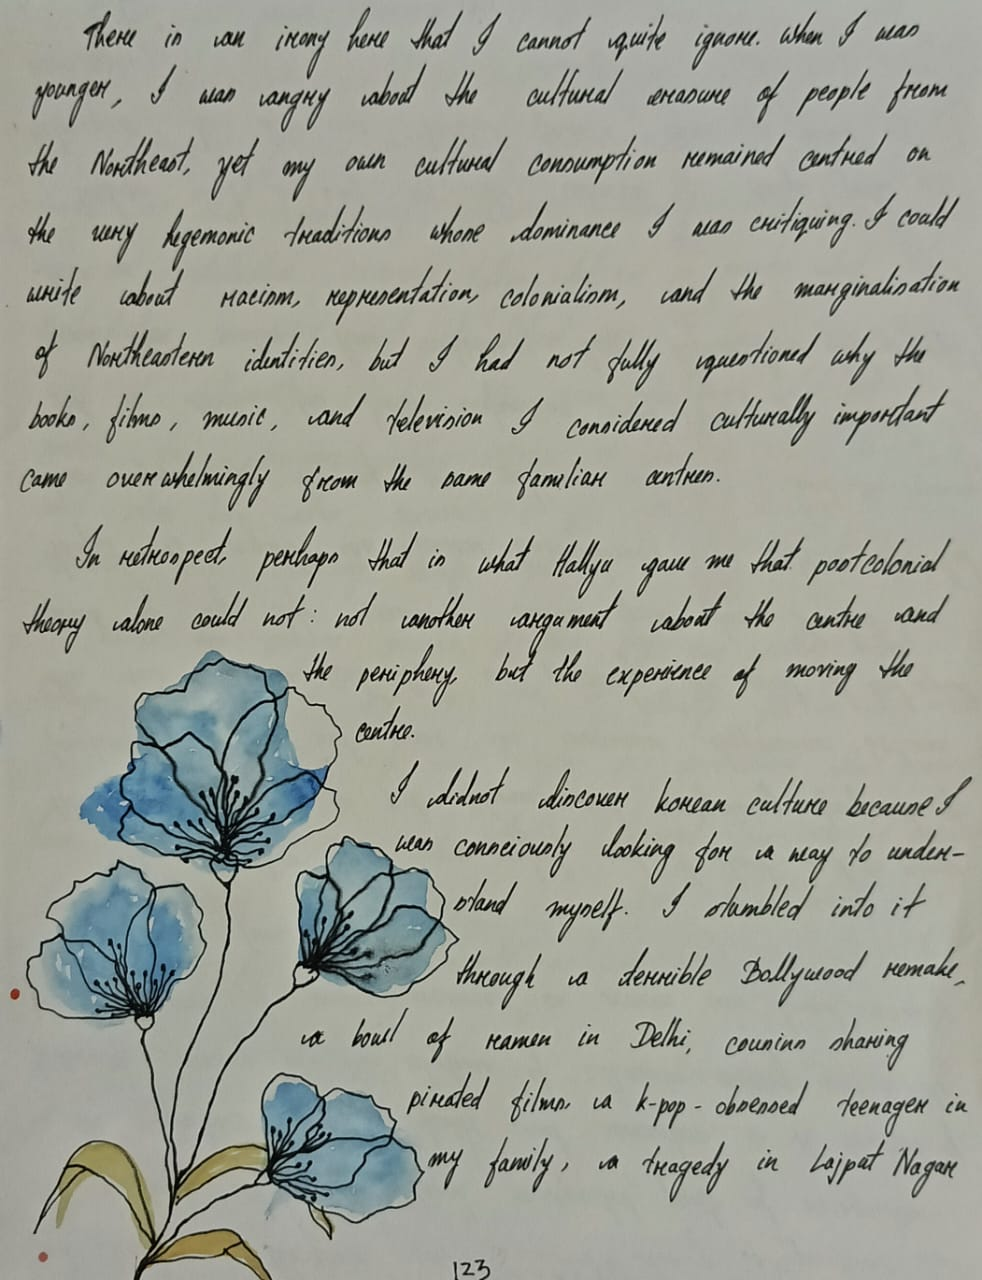 There is an irony here that I cannot quite ignore. When I was
younger, I was angry about the cultural erasure of people from
the Northeast, yet my own cultural consumption remained centred on
the very hegemonic traditions whose dominance I was critiquing. I could
write about racism, representation, colonialism, and the marginalisation
of Northeastern identities, but I had not fully questioned why the
books, films, music, and television I considered culturally important
came overwhelmingly from the same familiar centres.
In retrospect, perhaps that is what Hallyu gave me that postcolonial
theory alone could not: not another argument about the centre and
the periphery, but the experience of moving the
centre.
I didnot discover korean culture because I
was consciously looking for a way to under-
stand myself. I stumbled into it
through a terrible Bollywood remake,
a bowl of ramen in Delhi, cousins sharing
pirated films, a k-pop-obsessed teenager in
my family, a tragedy in Lajpat Nagar
123